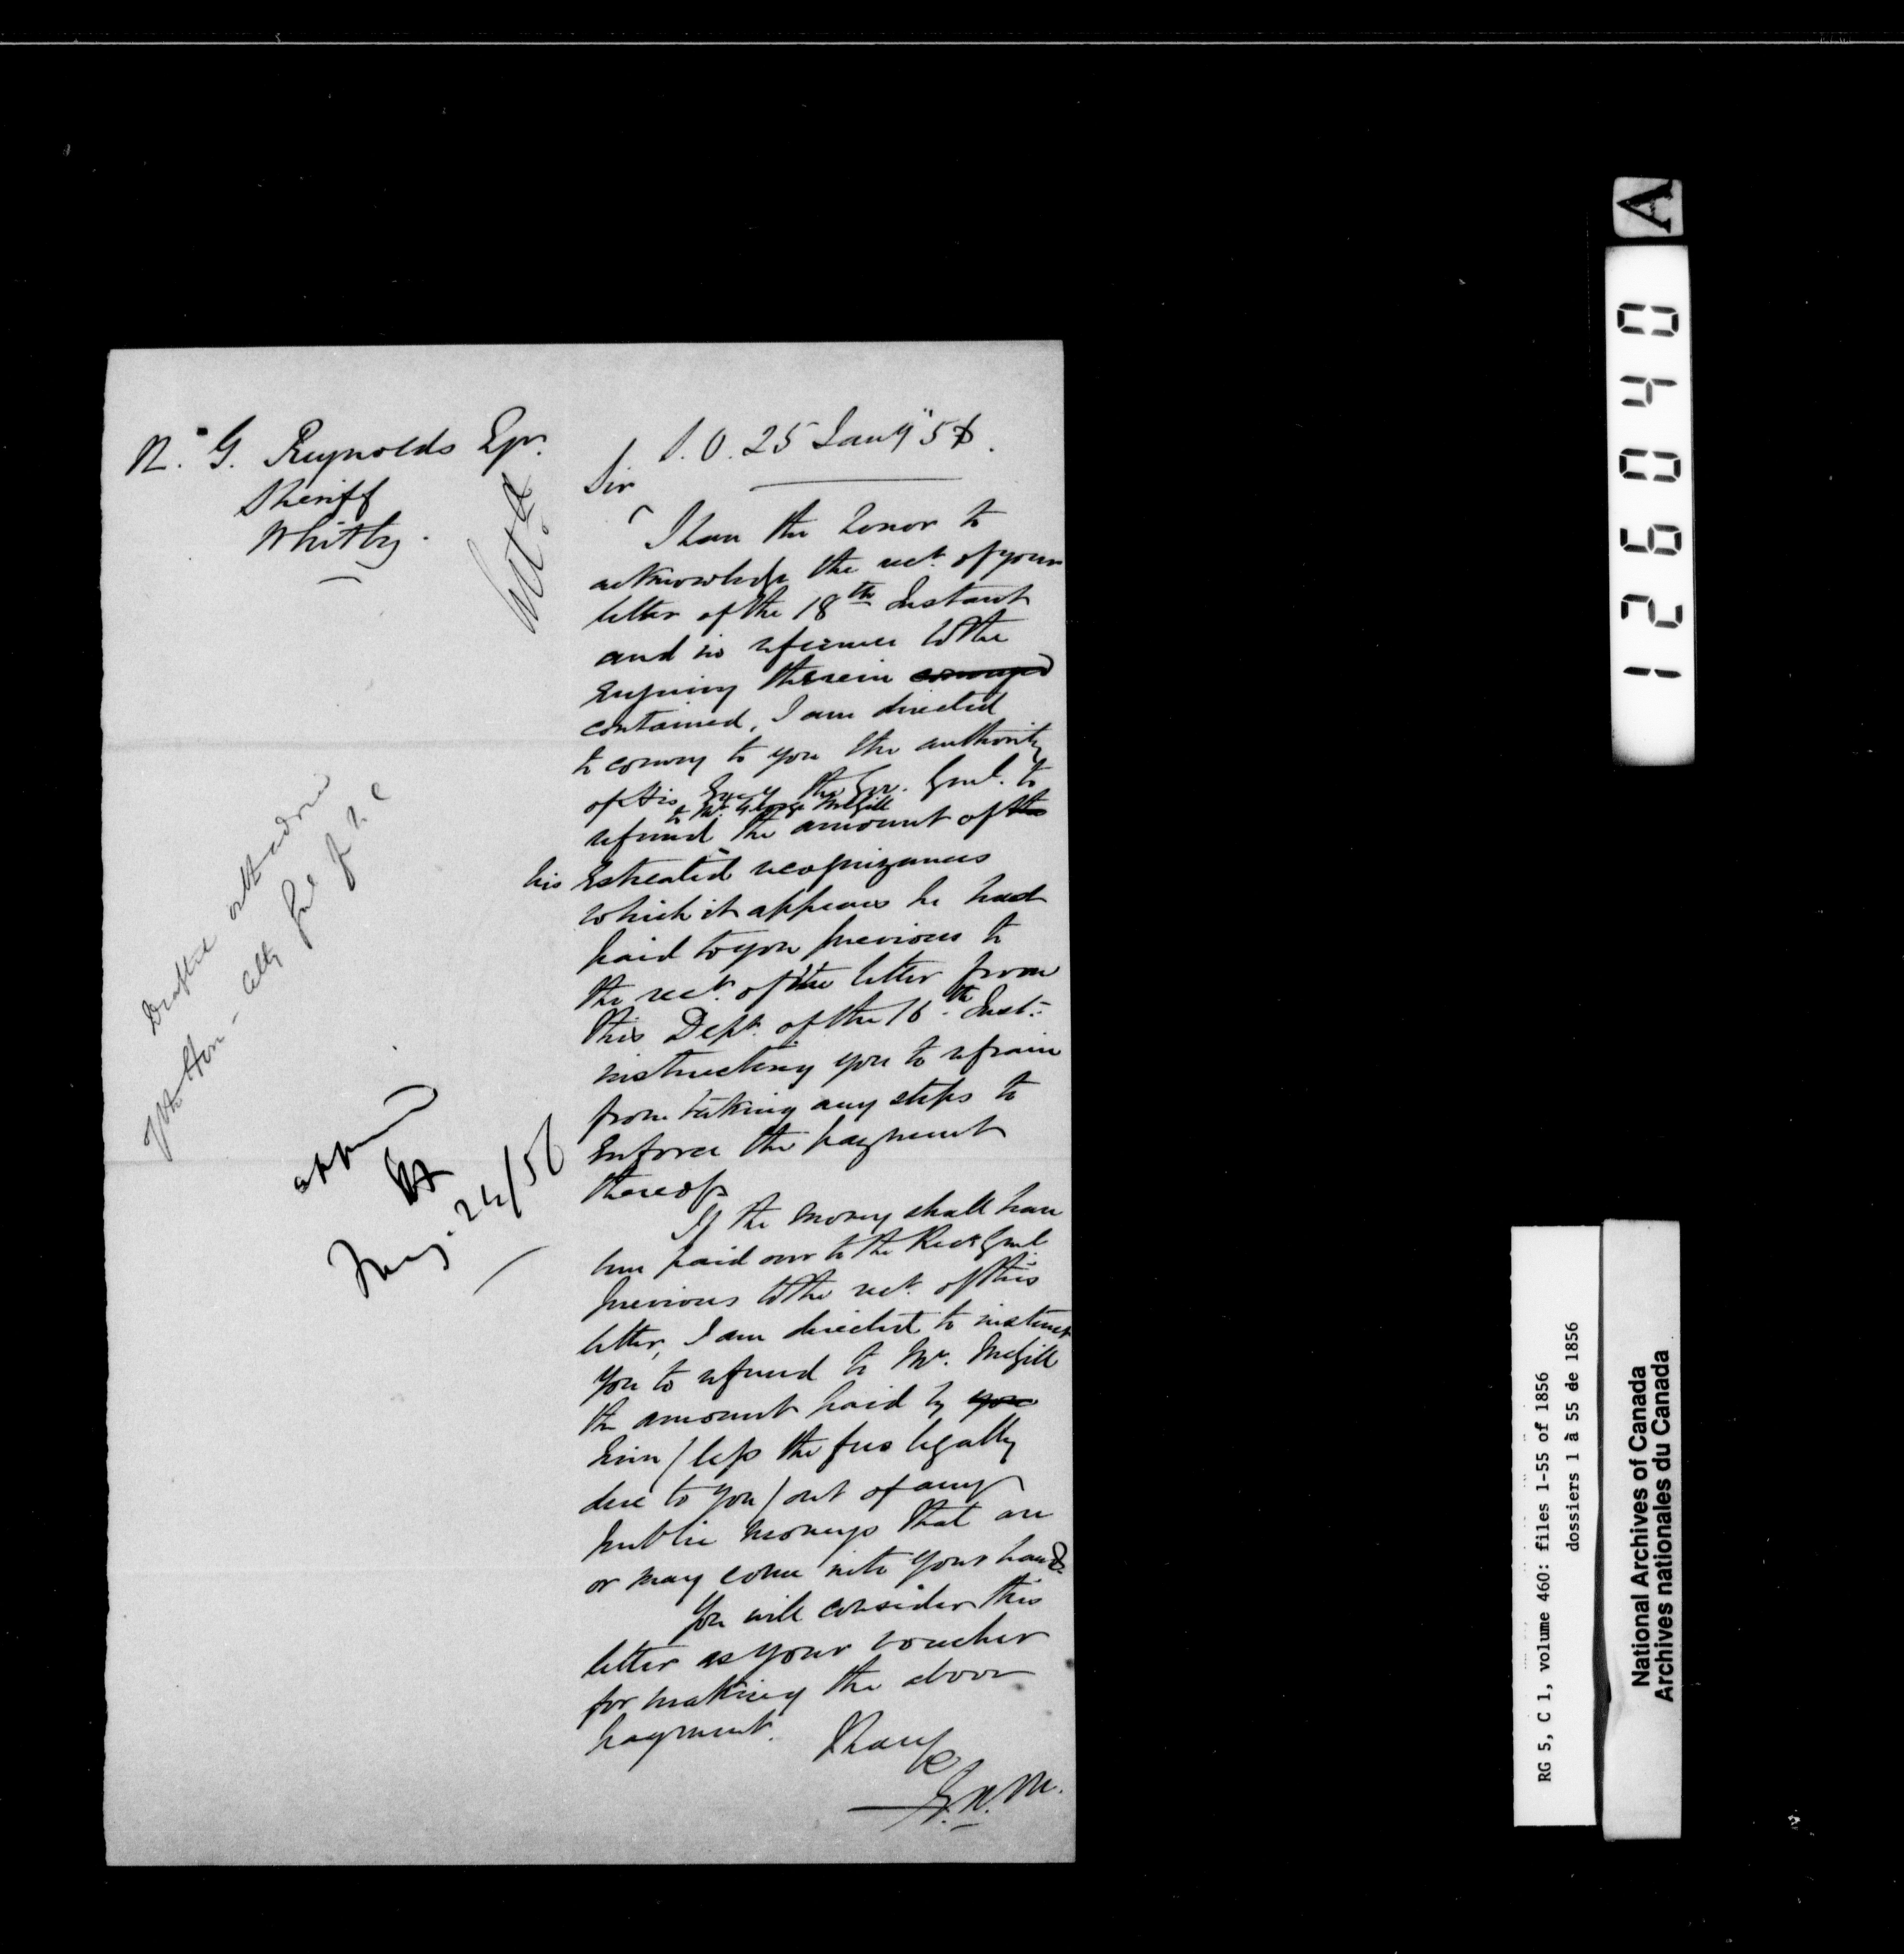 N. G. Reynolds Esqr.
Sheriff
Whitby.
S.O. 25 Jany 56.
Sir
I have the honor to
acknowledge the rect. of your
letter of the 18th Instant
and in reference to the
enquiry therein conveyed
contained, I am directed
to convey to you the authority
of His Excy the Gov. Genl. to
to Mr. George McGill
refund the amount of the
his Estreated recognizances
which it appears he had
paid to you previous to
the rect. of the letter from
this Dept. of the 16th Inst.
instructing you to refrain
from taking any steps to
enforce the payment
thereof
If the money shall have
been paid over to the Recr Genl
previous to the rect. of this
letter, I am directed to instruct
you to refund to Mr. McGill
the amount paid by you
him / less the fees legally
due to you / out of any
public moneys that are
or may come into your hands.
You will consider this
letter as your voucher
for making the above
payment.
I have
&
Drafted
of the Hon. Atty Genl
approved
24/56
A
126040
RG 5, C 1, volume 460: files 1-55 of 1856
dossiers 1 à 55 de 1856
National Archives of Canada
Archives nationales du Canada